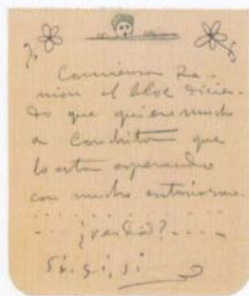 Comienza Ra-
mon el bloc dicien-
do que quiere mucho
a Conchita y que
lo esta esperando
con mucho entusiasmo.
¿verdad?
Si, si, si